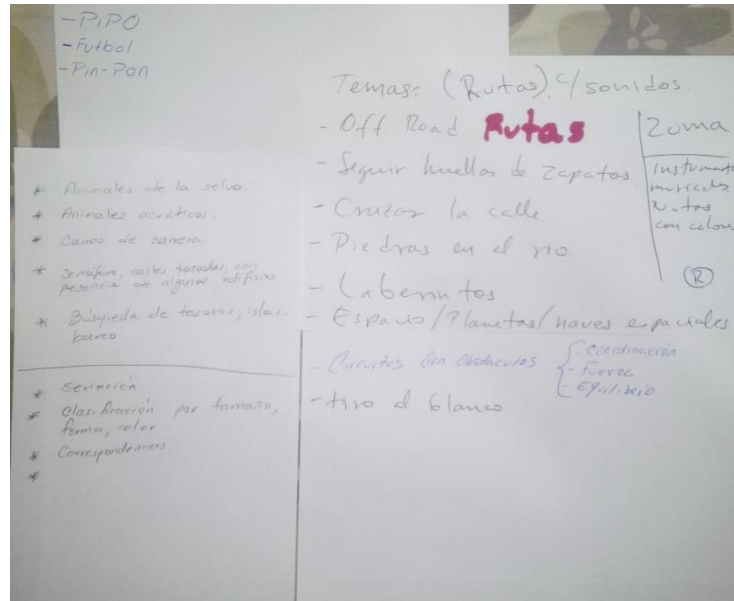 -PIPO
-Futbol
-Pin-Pon
Temas: (Rutas) c/ sonidos.
- Off Road Rutas
- Seguir huellas de zapatos
- Cruzar la calle
- Piedras en el rio
- Laberintos
- Espacio/Planetas/naves espaciales
Zuma
Instrumentos
musicales
Notas
con colores
R
* Animales de la selva
* Animales acuáticos.
* Carros de carrera
* Semáforo, calles, con
presencia de algunos edificios
* Búsqueda de tesoros, islas.
barco
* Seriación
* Clasificación por tamaño,
forma, color
* Correspondencias
*
- Circuitos con obstaculos
- Coordinación
- Fuerza
- Equilibrio
- tiro al blanco.